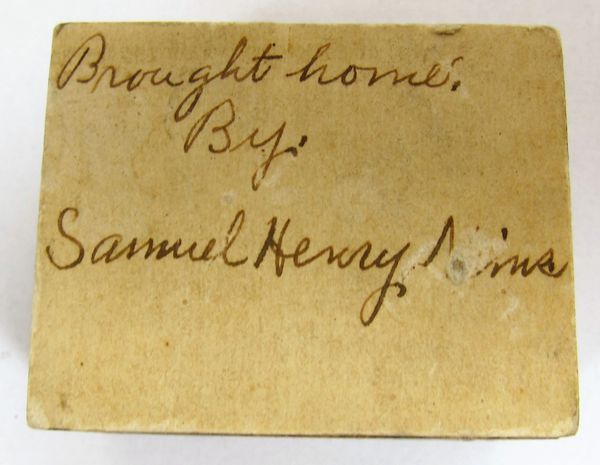 Brought home.
By.
Samuel Henry Nims